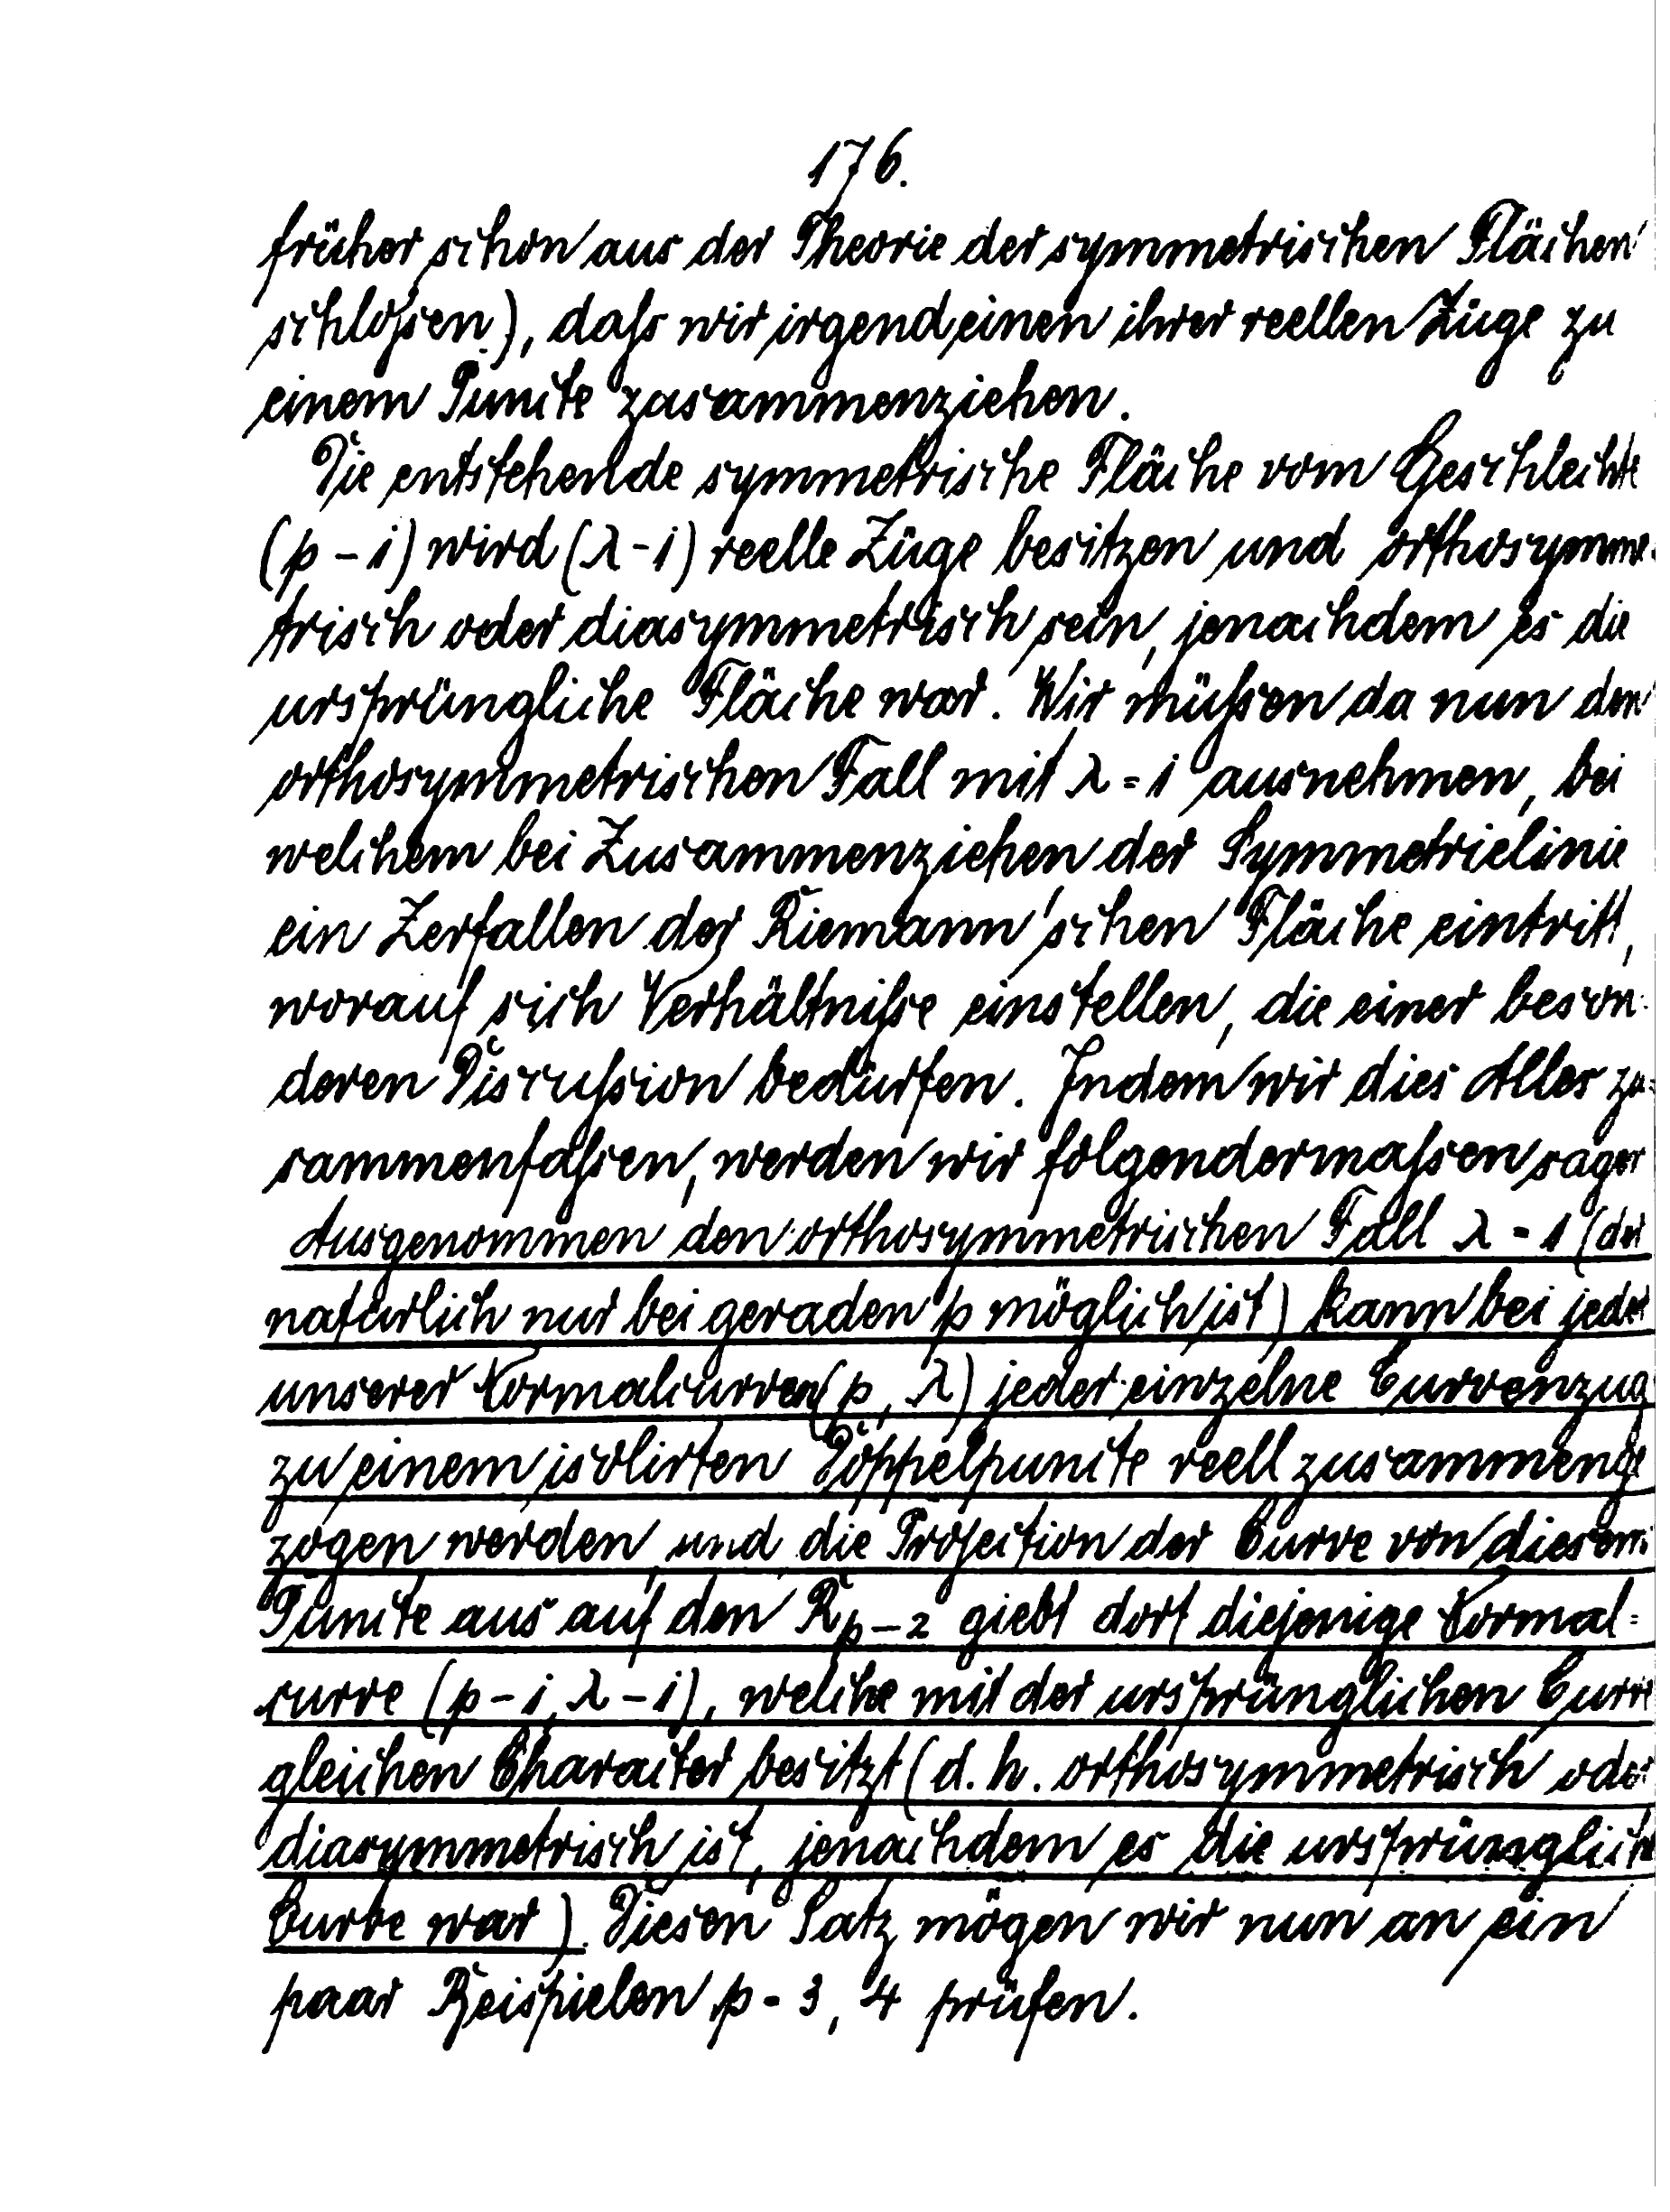 176.
früher schon aus der Theorie der symmetrischen Flächen
schloſsen), daſs wir irgend einen ihrer reellen Züge zu
einem Puncte zusammenziehen.
Die entstehende symmetrische Fläche vom Geschlechte
(p - 1) wird (λ - 1) reelle Züge besitzen und orthosymme-
trisch oder diasymmetrisch sein, jenachdem es die
ursprüngliche Fläche war. Wir müſsen da nun den
orthosymmetrischen Fall mit λ = 1 ausnehmen, bei
welchem bei Zusammenziehen der Symmetrielinie
ein Zerfallen der Riemann'schen Fläche eintritt,
worauf sich Verhältniſse einstellen, die einer beson-
deren Discuſsion bedürfen. Indem wir dies Alles zu-
sammenfaſsen, werden wir folgendermaſsen sagen
Ausgenommen den orthosymmetrischen Fall λ = 1 (der
natürlich nur bei geraden p möglich ist) kann bei jeder
unserer Normalcurven (p, λ) jeder einzelne Curvenzug
zu einem isolirten Doppelpuncte reell zusammenge
zogen werden, und die Projection der Curve von diesem
Puncte aus auf den R_{p-2} giebt dort diejenige Normal=
curve (p - 1, λ - 1), welche mit der ursprünglichen Curve
gleichen Character besitzt (d. h. orthosymmetrisch oder
diasymmetrisch ist, jenachdem es die ursprüngliche
Curve war). Diesen Satz mögen wir nun an ein
paar Beispielen p = 3, 4 prüfen.